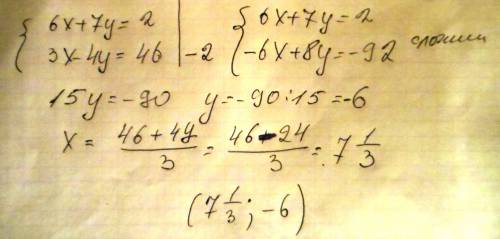 { 6x+7y=2 | { 6x+7y=2
3x-4y=46 | -2 -6x+8y=-92 сложим
15y=-90 y=-90:15=-6
x= (46+4y)/3 = (46-24)/3 = 7 1/3
(7 1/3; -6)